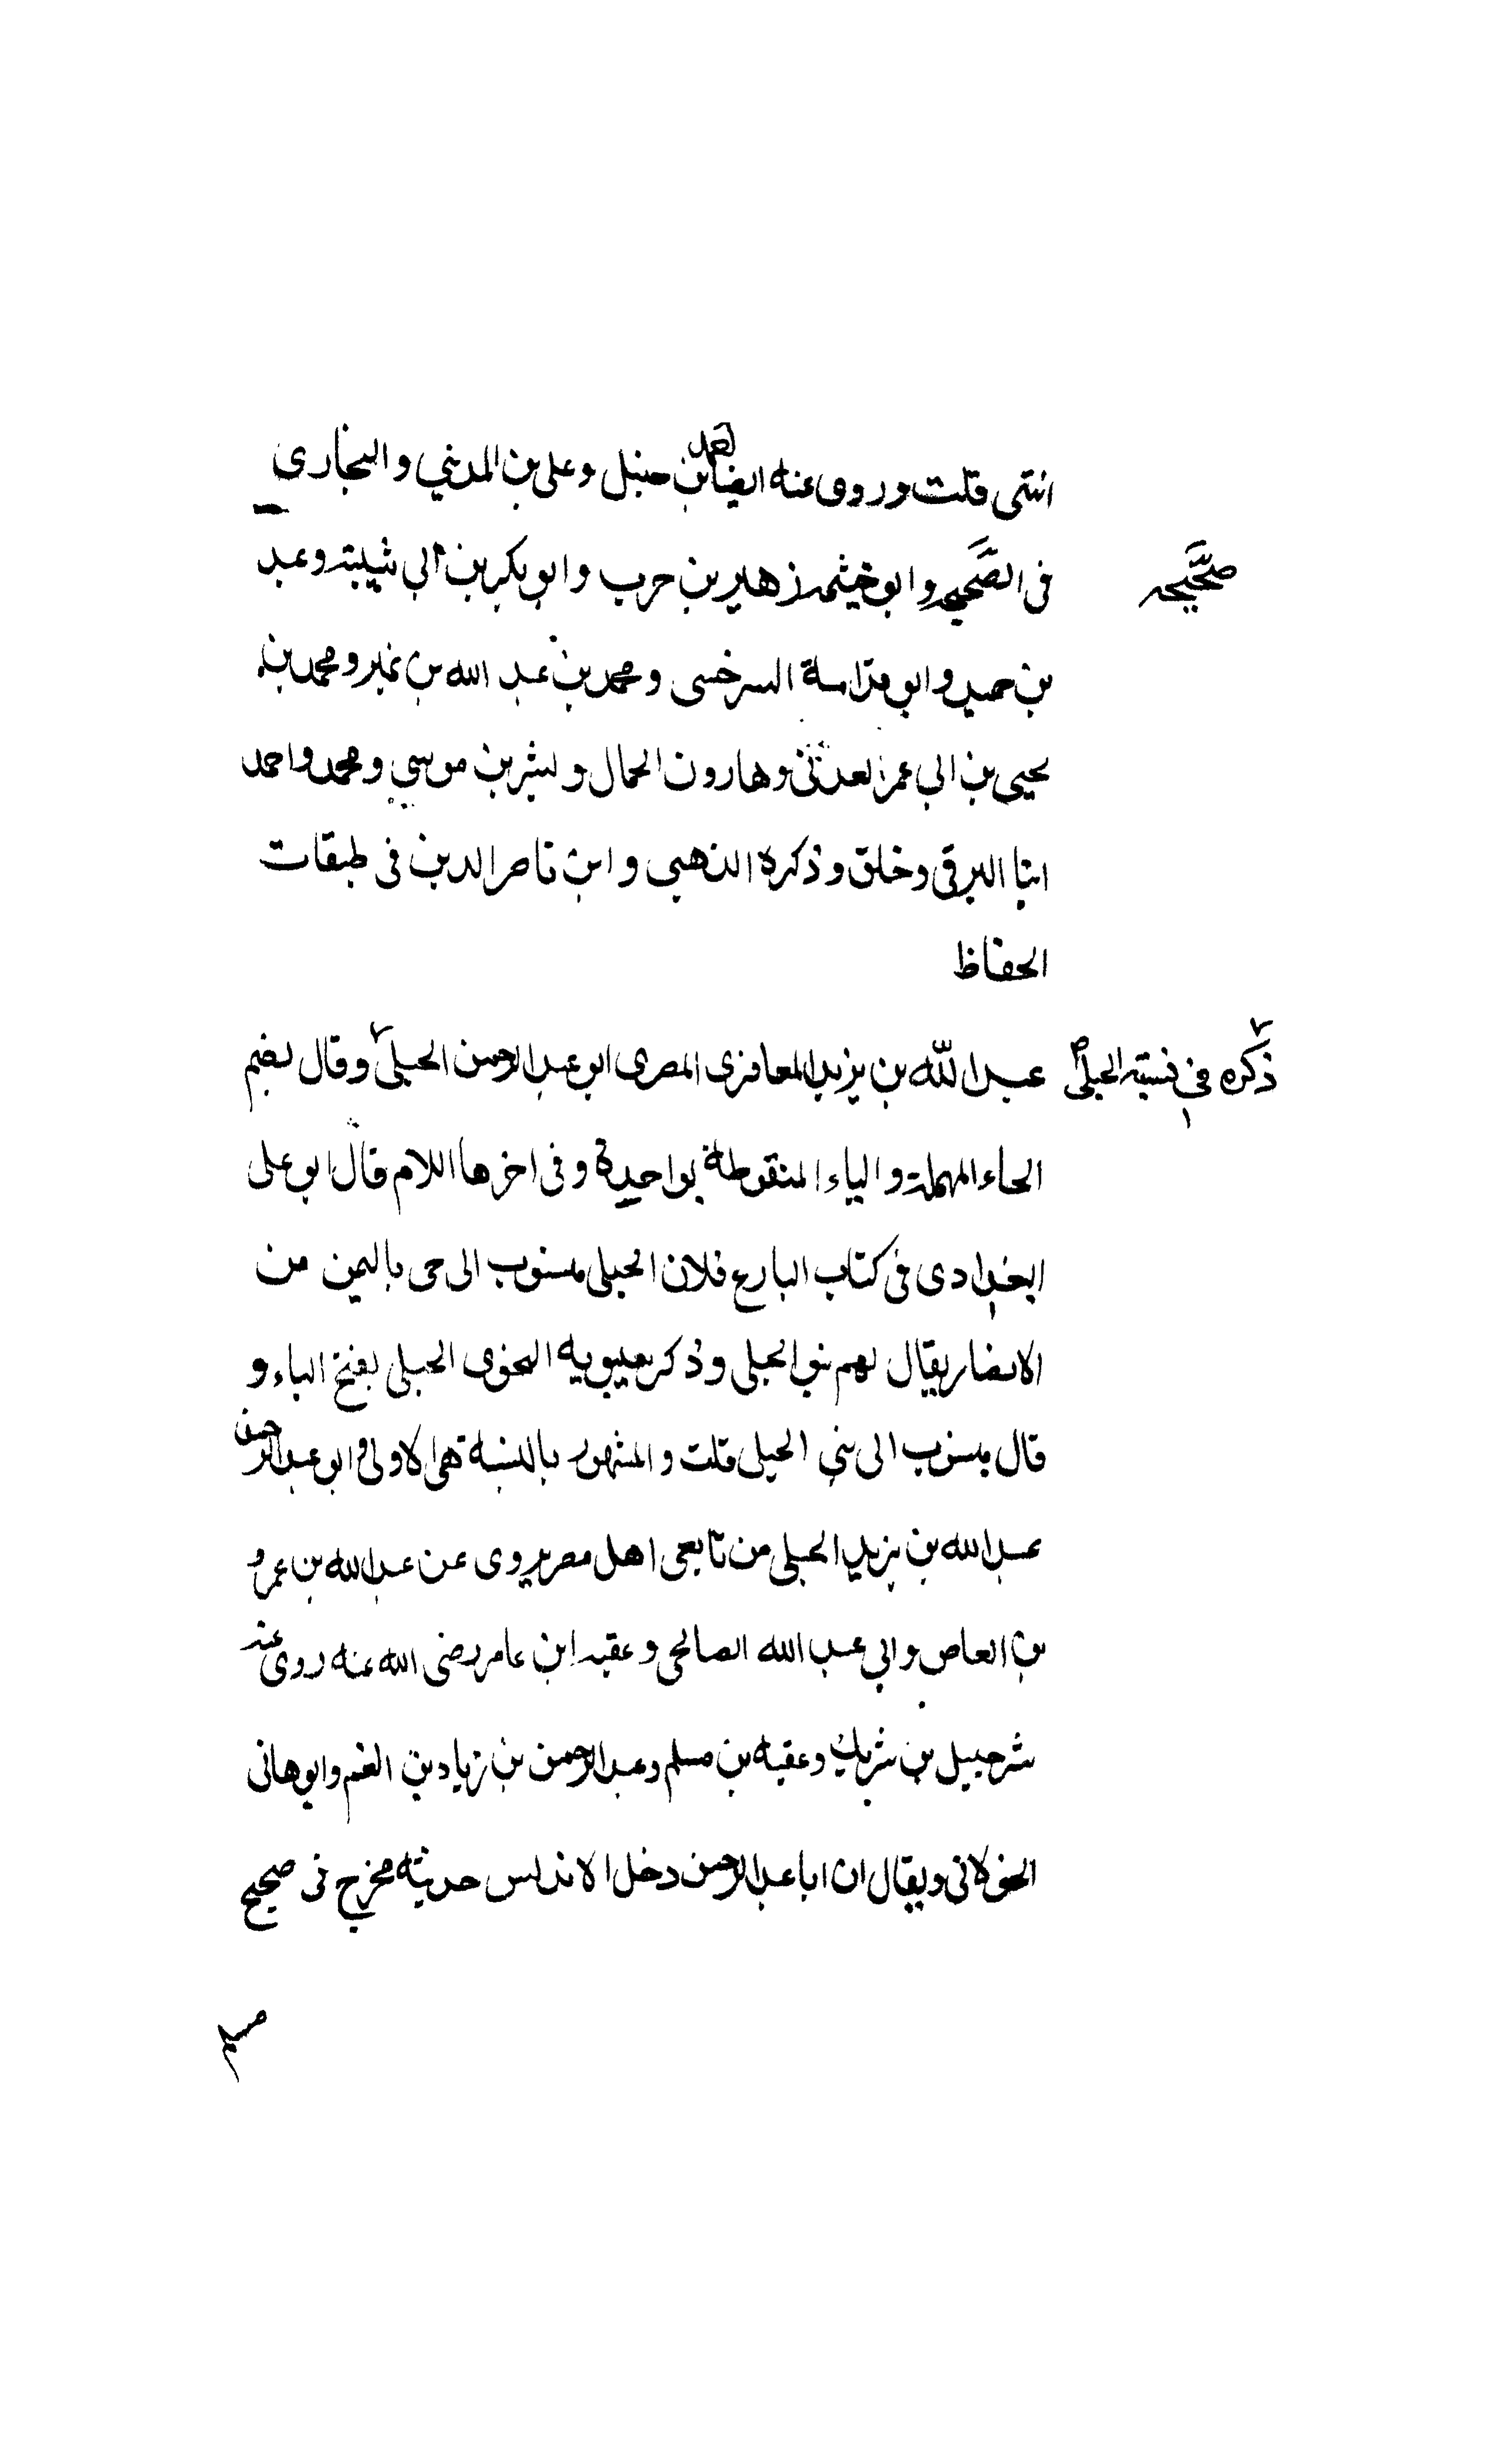 انتهى قلت وروى عنه ايضا احمد بن حنبل وعلى بن المديني والبخارى
فى الصحيح وابو خيثمه زهير بن حرب وابو بكر بن ابي شيبته وعبد
صحيحه
بن حميد وابو قدامة السرخسى ومحمد بن عبد الله بن نمير ومحمد بن
يحيى بن ابي عمر العدنى وهارون الحمال وبشر بن موسي ومحمد واحمد
ابنا البرقى وخلق وذكره الذهبى وابن ناصر الدين فى طبقات
الحفاظ
ذكره في نسبته الحبلى
عبد الله بن يزيد المعافرى المصرى ابو عبد الرحمن الحبلى وقال بضم
الحاء المهملة والباء المنقوطة بواحدة وفى اخرها اللام قال ابو على
البغدادى فى كتاب البارع فلان الحبلى منسوب الى حى باليمن من
الانصار يقال لهم بنو الحبلى وذكر سيبويه النحوى الحبلى بفتح الباء و
قال منسوب الى بني الحبلى قلت والمشهور بالنسبة هى الاولى وابو عبد الرحمن
عبد الله بن يزيد الحبلى من تابعى اهل مصر يروى عن عبد الله بن عمرو
بن العاص وابي عبد الله الصالحى وعقبه ابن عامر رضى الله عنه روى عنه
شرحبيل بن شريك وعقبه بن مسلم وعبد الرحمن بن زياد بن انعم وابو هانى
الخولانى ويقال ان ابا عبد الرحمن دخل الاندلس حديثه مخرج فى صحيح
مسلم